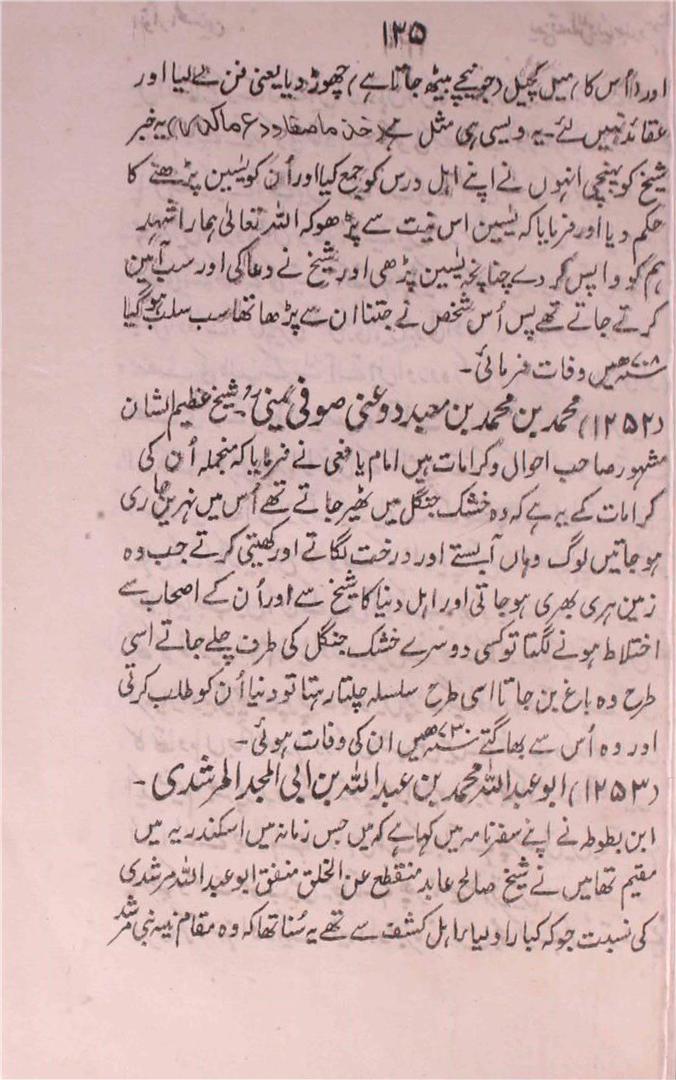 ۱۲۵
اور (اُس کا) میل کچیل (جو نیچے بیٹھ جاتا ہے) چھوڑ دیا یعنی فن لے لیا اور
عقائد نہیں لئے۔ یہ ویسی ہی مثل ہے (خذ ما صفا ودع ما کدر) یہ خبر
شیخ کو پہنچی انہوں نے اپنے اہل درس کو جمع کیا اور اُن کو یٰسین پڑھنے کا
حکم دیا اور فرمایا کہ یٰسین اس نیت سے پڑھو کہ اللہ تعالیٰ ہمارا شہد
ہم کو واپس کر دے چنانچہ یٰسین پڑھی اور شیخ نے دعا کی اور سب آمین
کرتے جاتے تھے پس اُس شخص نے جتنا ان سے پڑھا تھا سب سلب ہو گیا
۷۰۸ھ میں وفات فرمائی۔
(۱۲۵۲) محمد بن محمد بن معبد دوعنی صوفی یمنیؒ۔ شیخ عظیم الشان
مشہور صاحب احوال و کرامات ہیں امام یافعی نے فرمایا کہ منجملہ اُن کی
کرامات کے یہ ہے کہ وہ خشک جنگل میں ٹھیر جاتے تھے اُس میں نہریں جاری
ہو جاتیں لوگ وہاں آ بستے اور درخت لگاتے اور کھیتی کرتے جب وہ
زمین ہری بھری ہو جاتی اور اہل دنیا کا شیخ سے اور اُن کے اصحاب سے
اختلاط ہونے لگتا تو کسی دوسرے خشک جنگل کی طرف چلے جاتے اسی
طرح وہ باغ بن جاتا اسی طرح سلسلہ چلتا رہتا تو دنیا اُن کو طلب کرتی
اور وہ اُس سے بھاگتے ۷۳۰ھ میں ان کی وفات ہوئی۔
(۱۲۵۳) ابو عبد اللہ محمد بن عبد اللہ بن ابی المجد المرشدی۔
ابن بطوطہ نے اپنے سفرنامہ میں کہا ہے کہ میں جس زمانہ میں اسکندریہ میں
مقیم تھا میں نے شیخ صالح عابد منقطع عن الخلق منفق ابو عبد اللہ مرشدی
کی نسبت جو کہ کبار اولیاء اہل کشف سے تھے یہ سُنا تھا کہ وہ مقام منیہ بنی مرشد